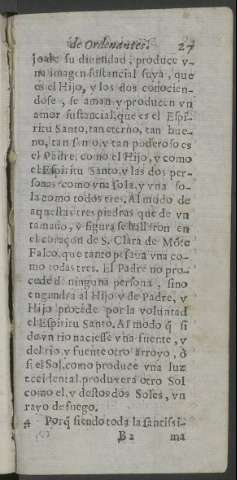 de Ordenantes. 27
su diuinidad, produce v-
na imagen sustancial suya, que
es el Hijo, y los dos conocien-
dose, se aman y producen vn
amor sustancial, que es el Espi-
ritu Santo, tan eterno, tan bue-
no, tan santo, y tan poderoso es
el Padre, como el Hijo, y como
el Espiritu Santo, y las dos per-
sonas como vna sola, y vna so-
la como todos tres. Al modo de
aquellas tres piedras que de vn
tamaño, y figura se hallaron en
el coraçon de S. Clara de Môte
Falco, que tanto pesaua vna co-
mo todas tres. El Padre no pro-
cede de ninguna persona, sino
engendra al Hijo y de Padre, y
Hijo procede por la voluntad
el Espiritu Santo. Al modo q̃ si
de vn rio naciesse vna fuente, y
del rio, y fuente otro arroyo, ò
si el Sol, como produce vna luz
accidental, produxera otro Sol
como el, y destos dos Soles, vn
rayo de fuego.
4 Porq̃ siendo toda la santissi-
B 2 ma